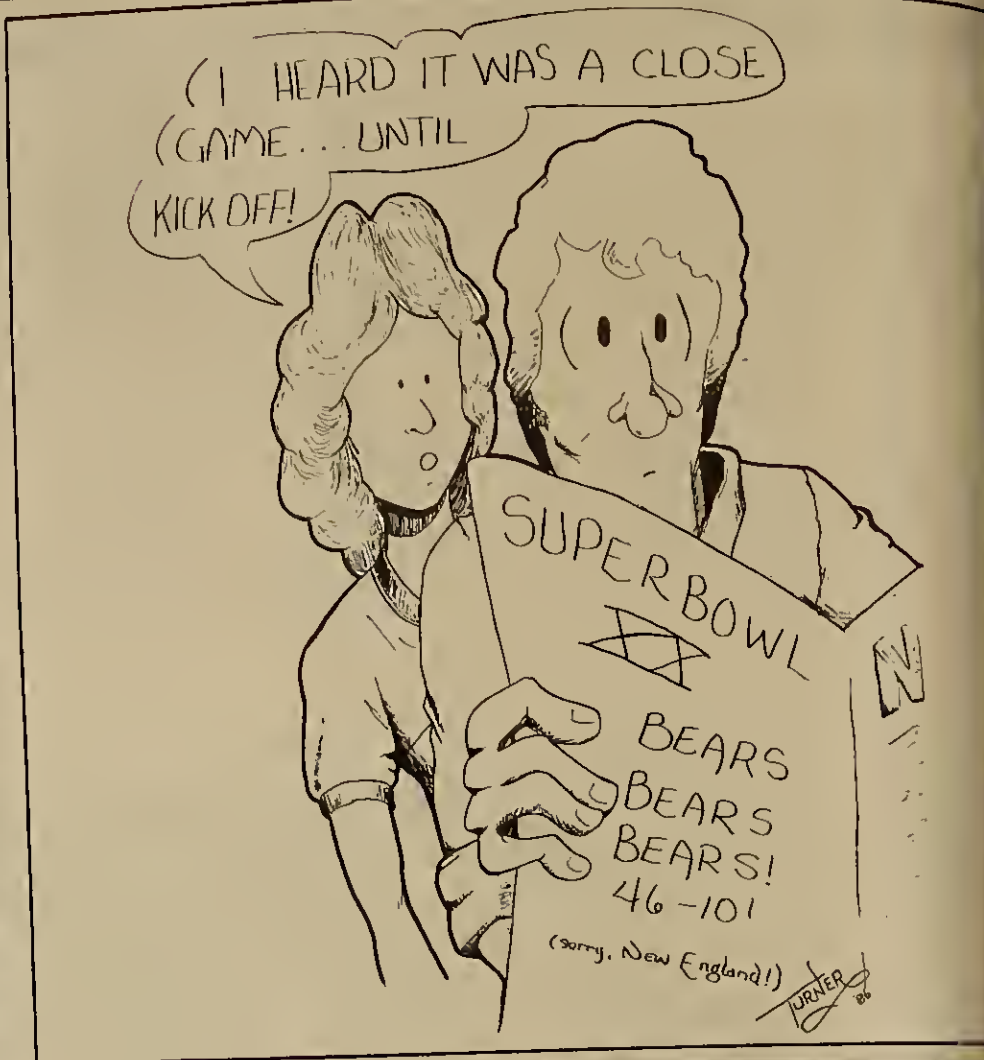 (I HEARD IT WAS A CLOSE
(GAME... UNTIL
KICK OFF!
SUPERBOWL
XX
N
BEARS
BEARS
BEARS!
46-10!
(sorry, New England!)
TURNER '86